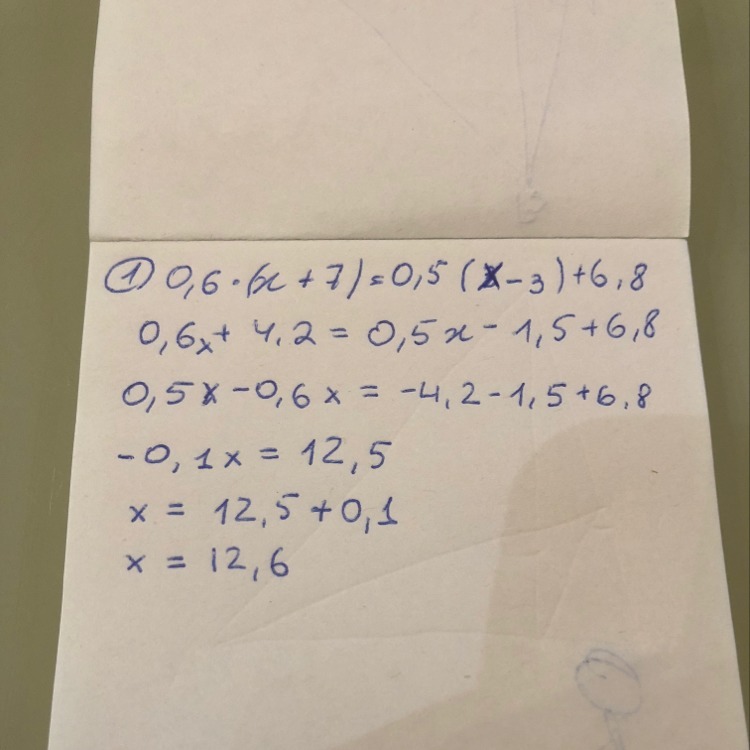 ① 0,6·(x+7)=0,5(x-3)+6,8
0,6x+4,2=0,5x-1,5+6,8
0,5x-0,6x=-4,2-1,5+6,8
-0,1x=12,5
x=12,5+0,1
x=12,6